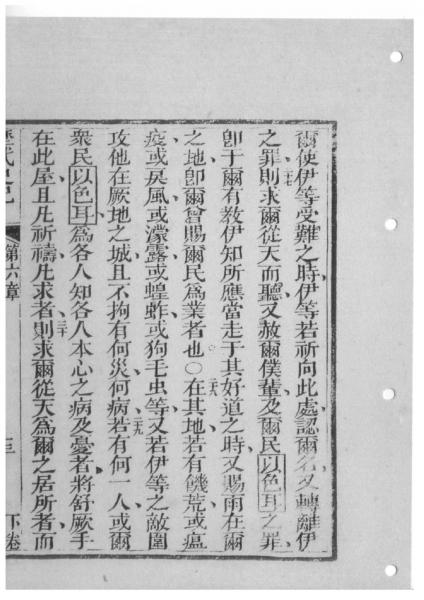 爾使伊等受難之時伊等若祈向此處認爾名又轉離伊
之罪二十七則求爾從天而聽又赦爾僕輩及爾民以色耳之罪
卽于爾有教伊知所應當走于其好道之時又賜雨在爾
之地卽爾曾賜爾民爲業者也○二十八在其地若有饑荒或瘟
疫或戾風或濛露或蝗蚱或狗毛虫等又若伊等之敵圍
攻他在厥地之城且不拘有何災何病二十九若有何一人或爾
衆民以色耳爲各人知各人本心之病及憂者將舒厥手
在此屋且凡祈禱凡求者三十則求爾從天爲爾之居所者而
第六章
下卷